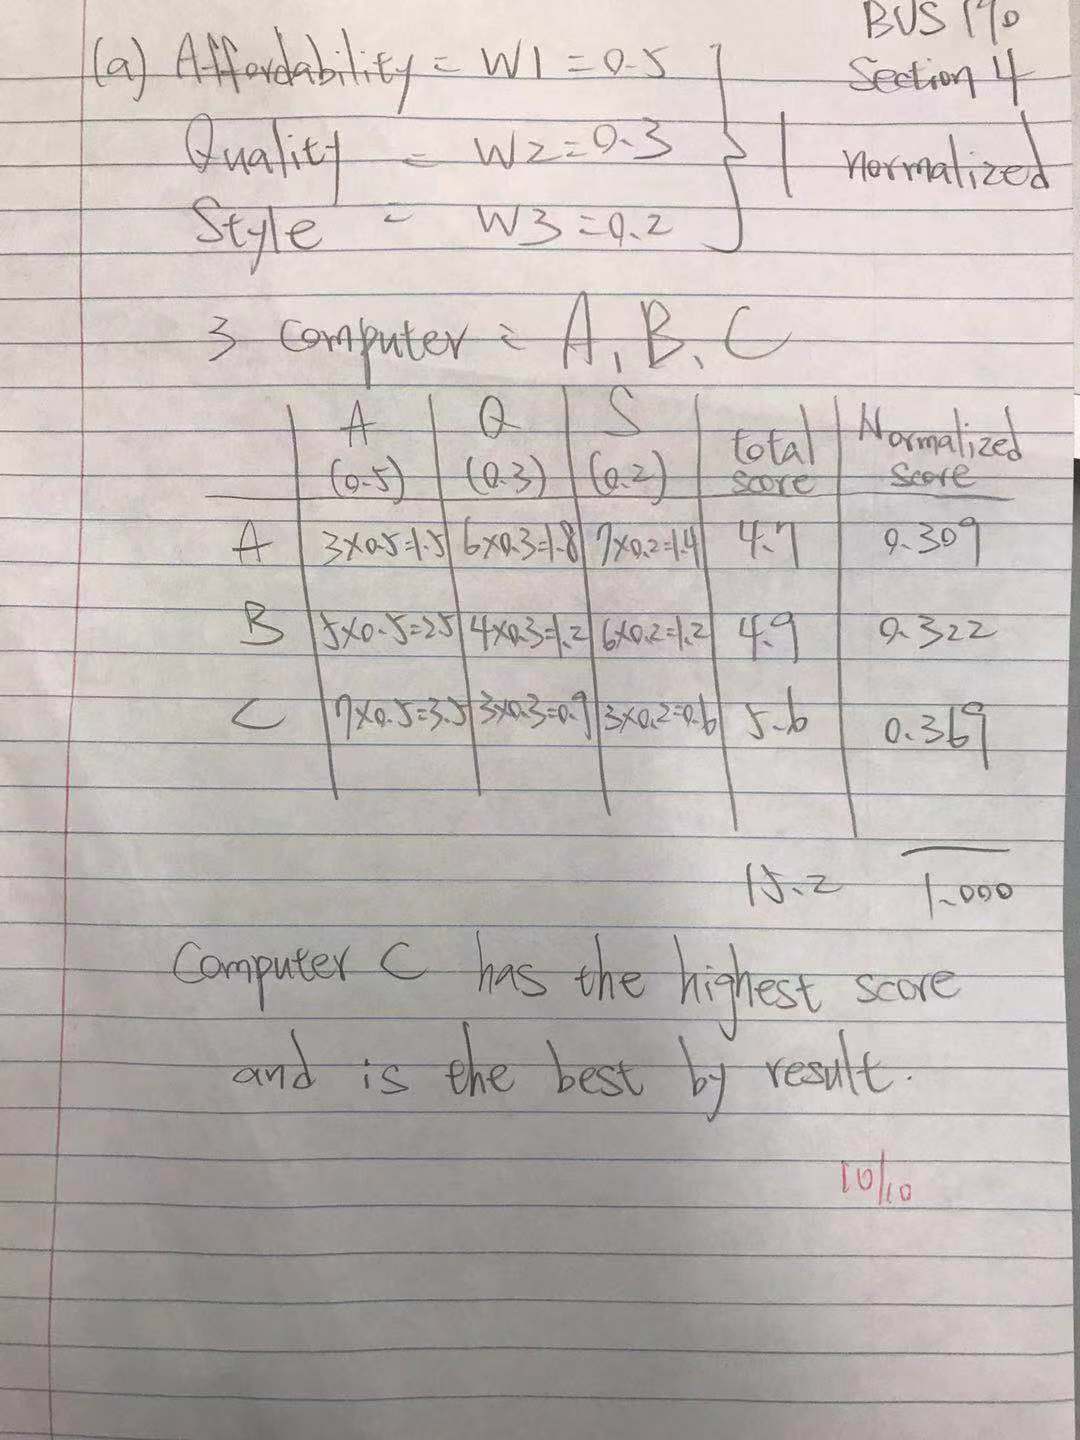 BUS 190
Section 4
(a) Affordability = W1 = 0.5
Quality = W2 = 0.3
Style = W3 = 0.2
1 normalized
3 Computer = A, B, C
A Q S total Normalized
(0.5) (0.3) (0.2) score score
A 3x0.5=1.5 6x0.3=1.8 7x0.2=1.4 4.7 0.309
B 5x0.5=2.5 4x0.3=1.2 6x0.2=1.2 4.9 0.322
C 7x0.5=3.5 3x0.3=0.9 3x0.2=0.6 5.6 0.369
15.2 1.000
Computer C has the highest score
and is the best by result.
10/10